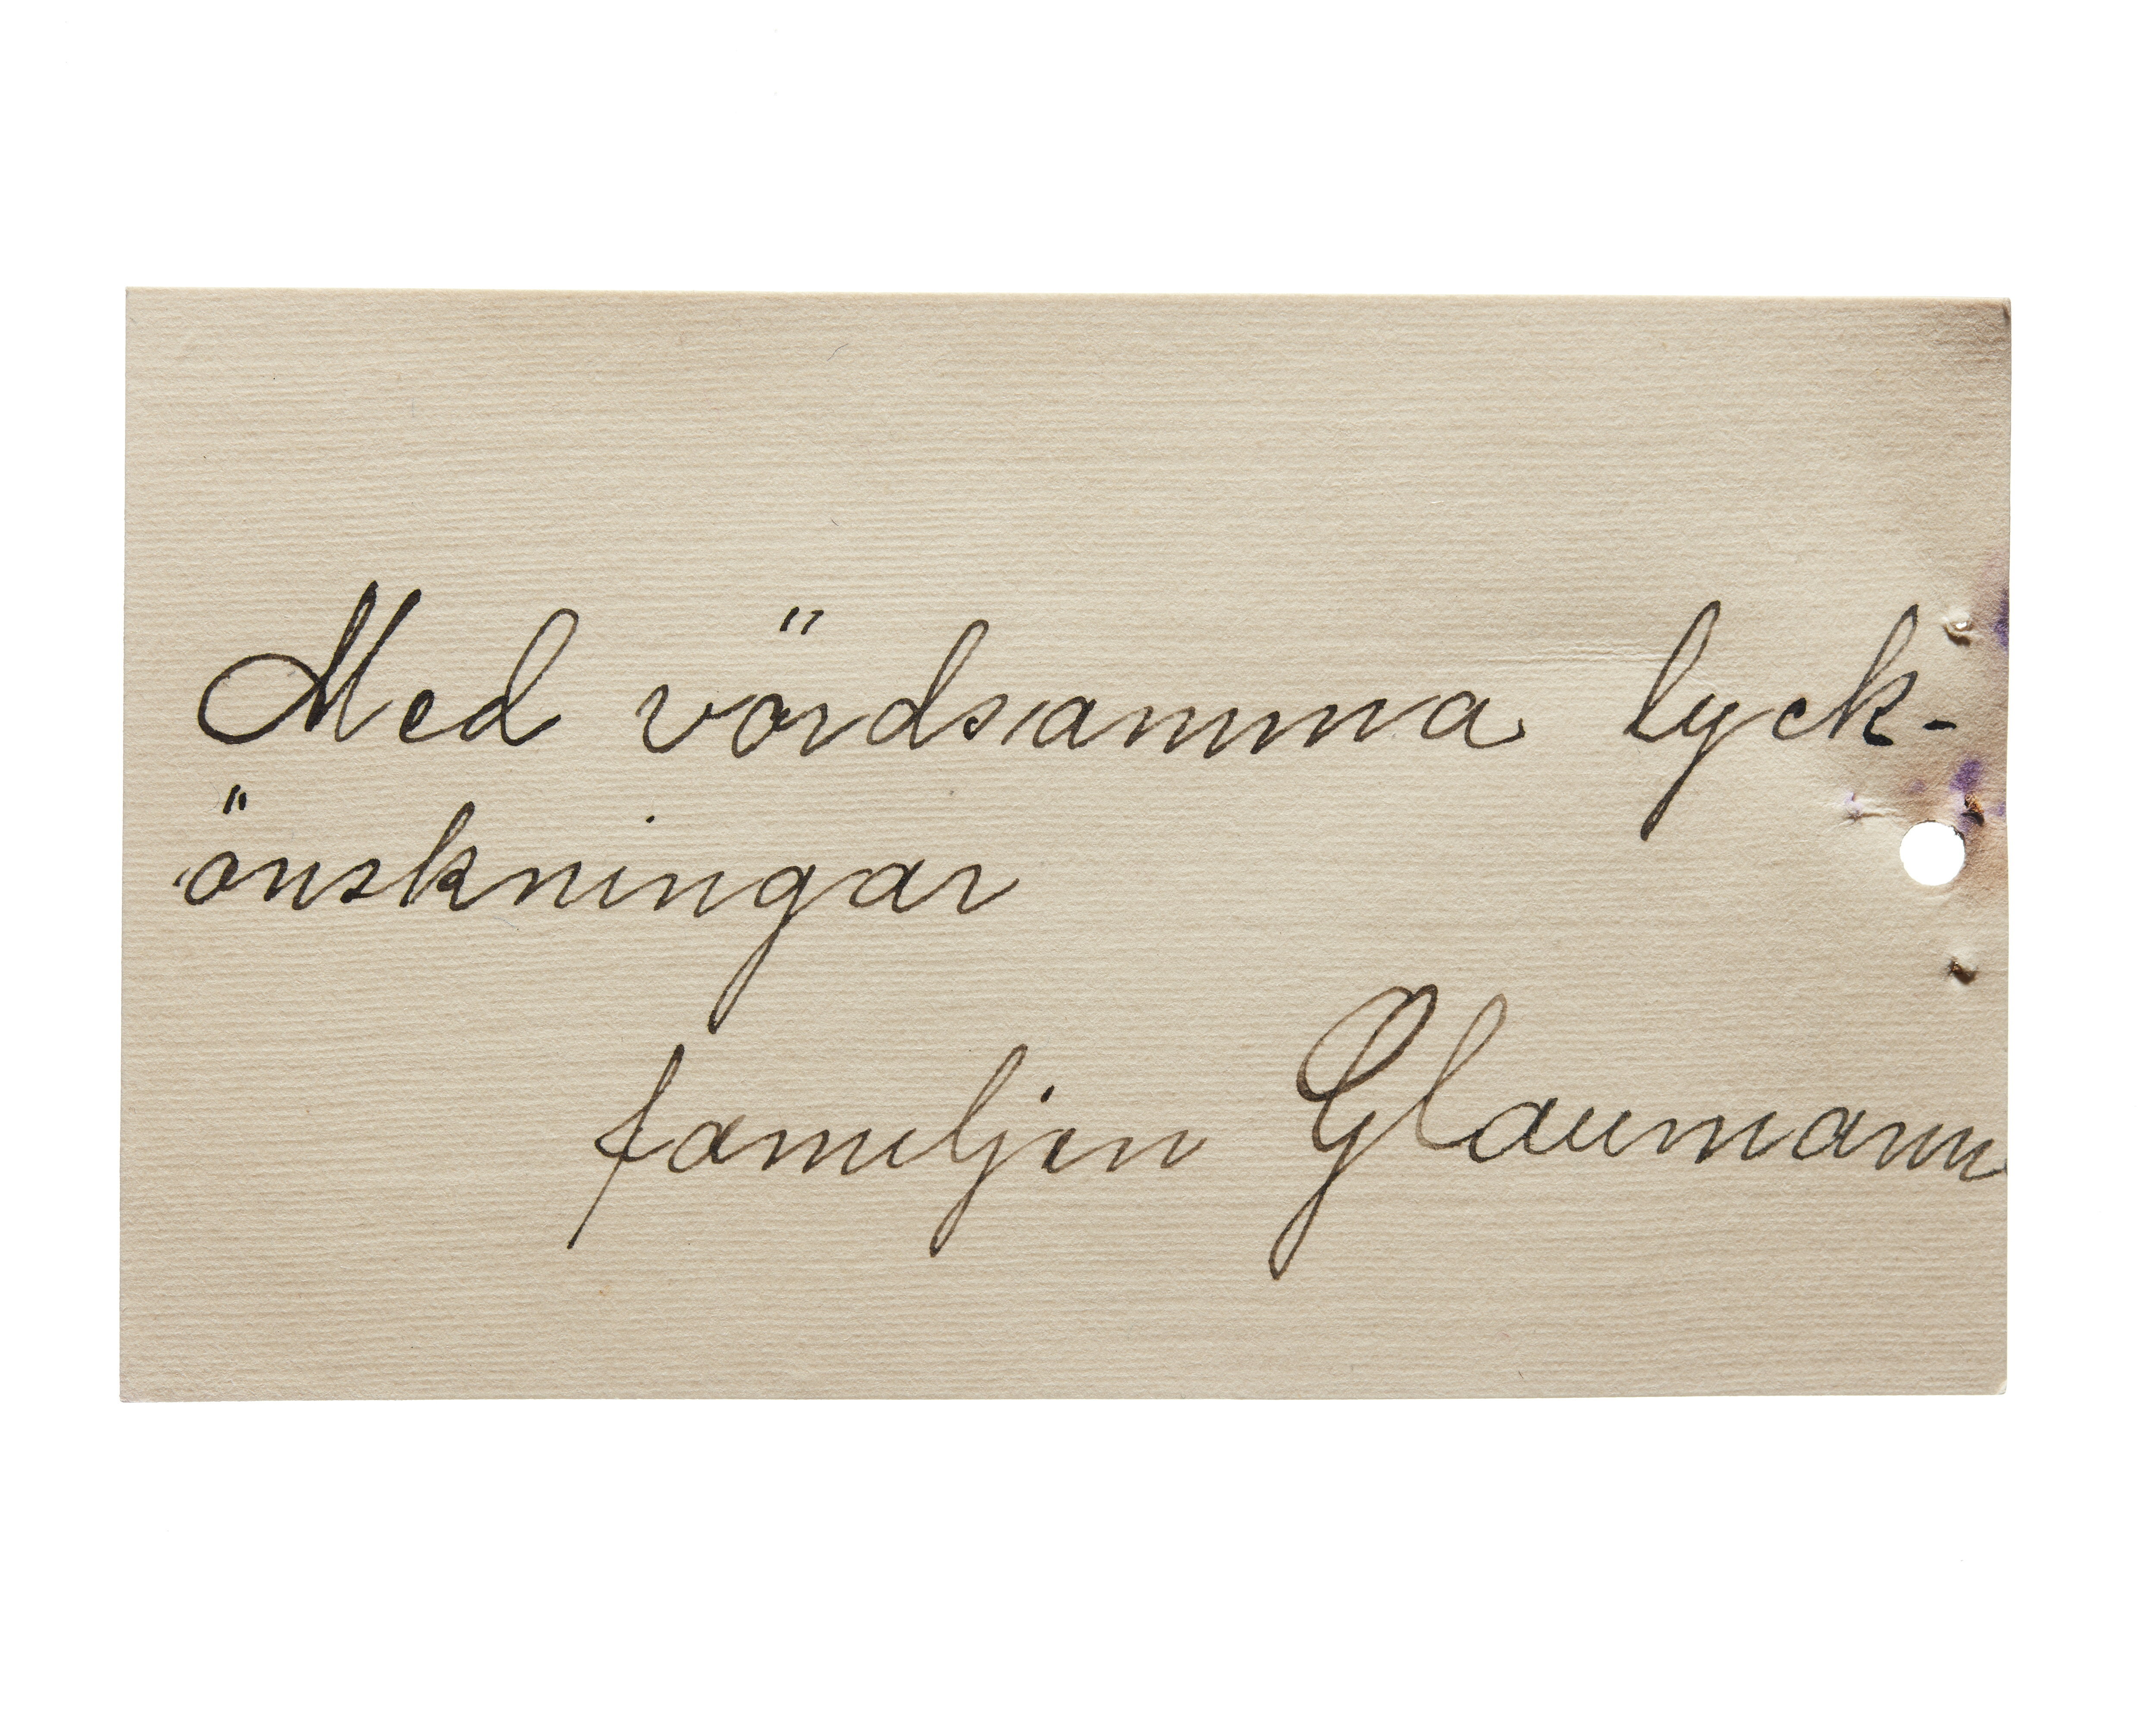 Med vördsamma lyck-
önskningar
familjen Glaumann